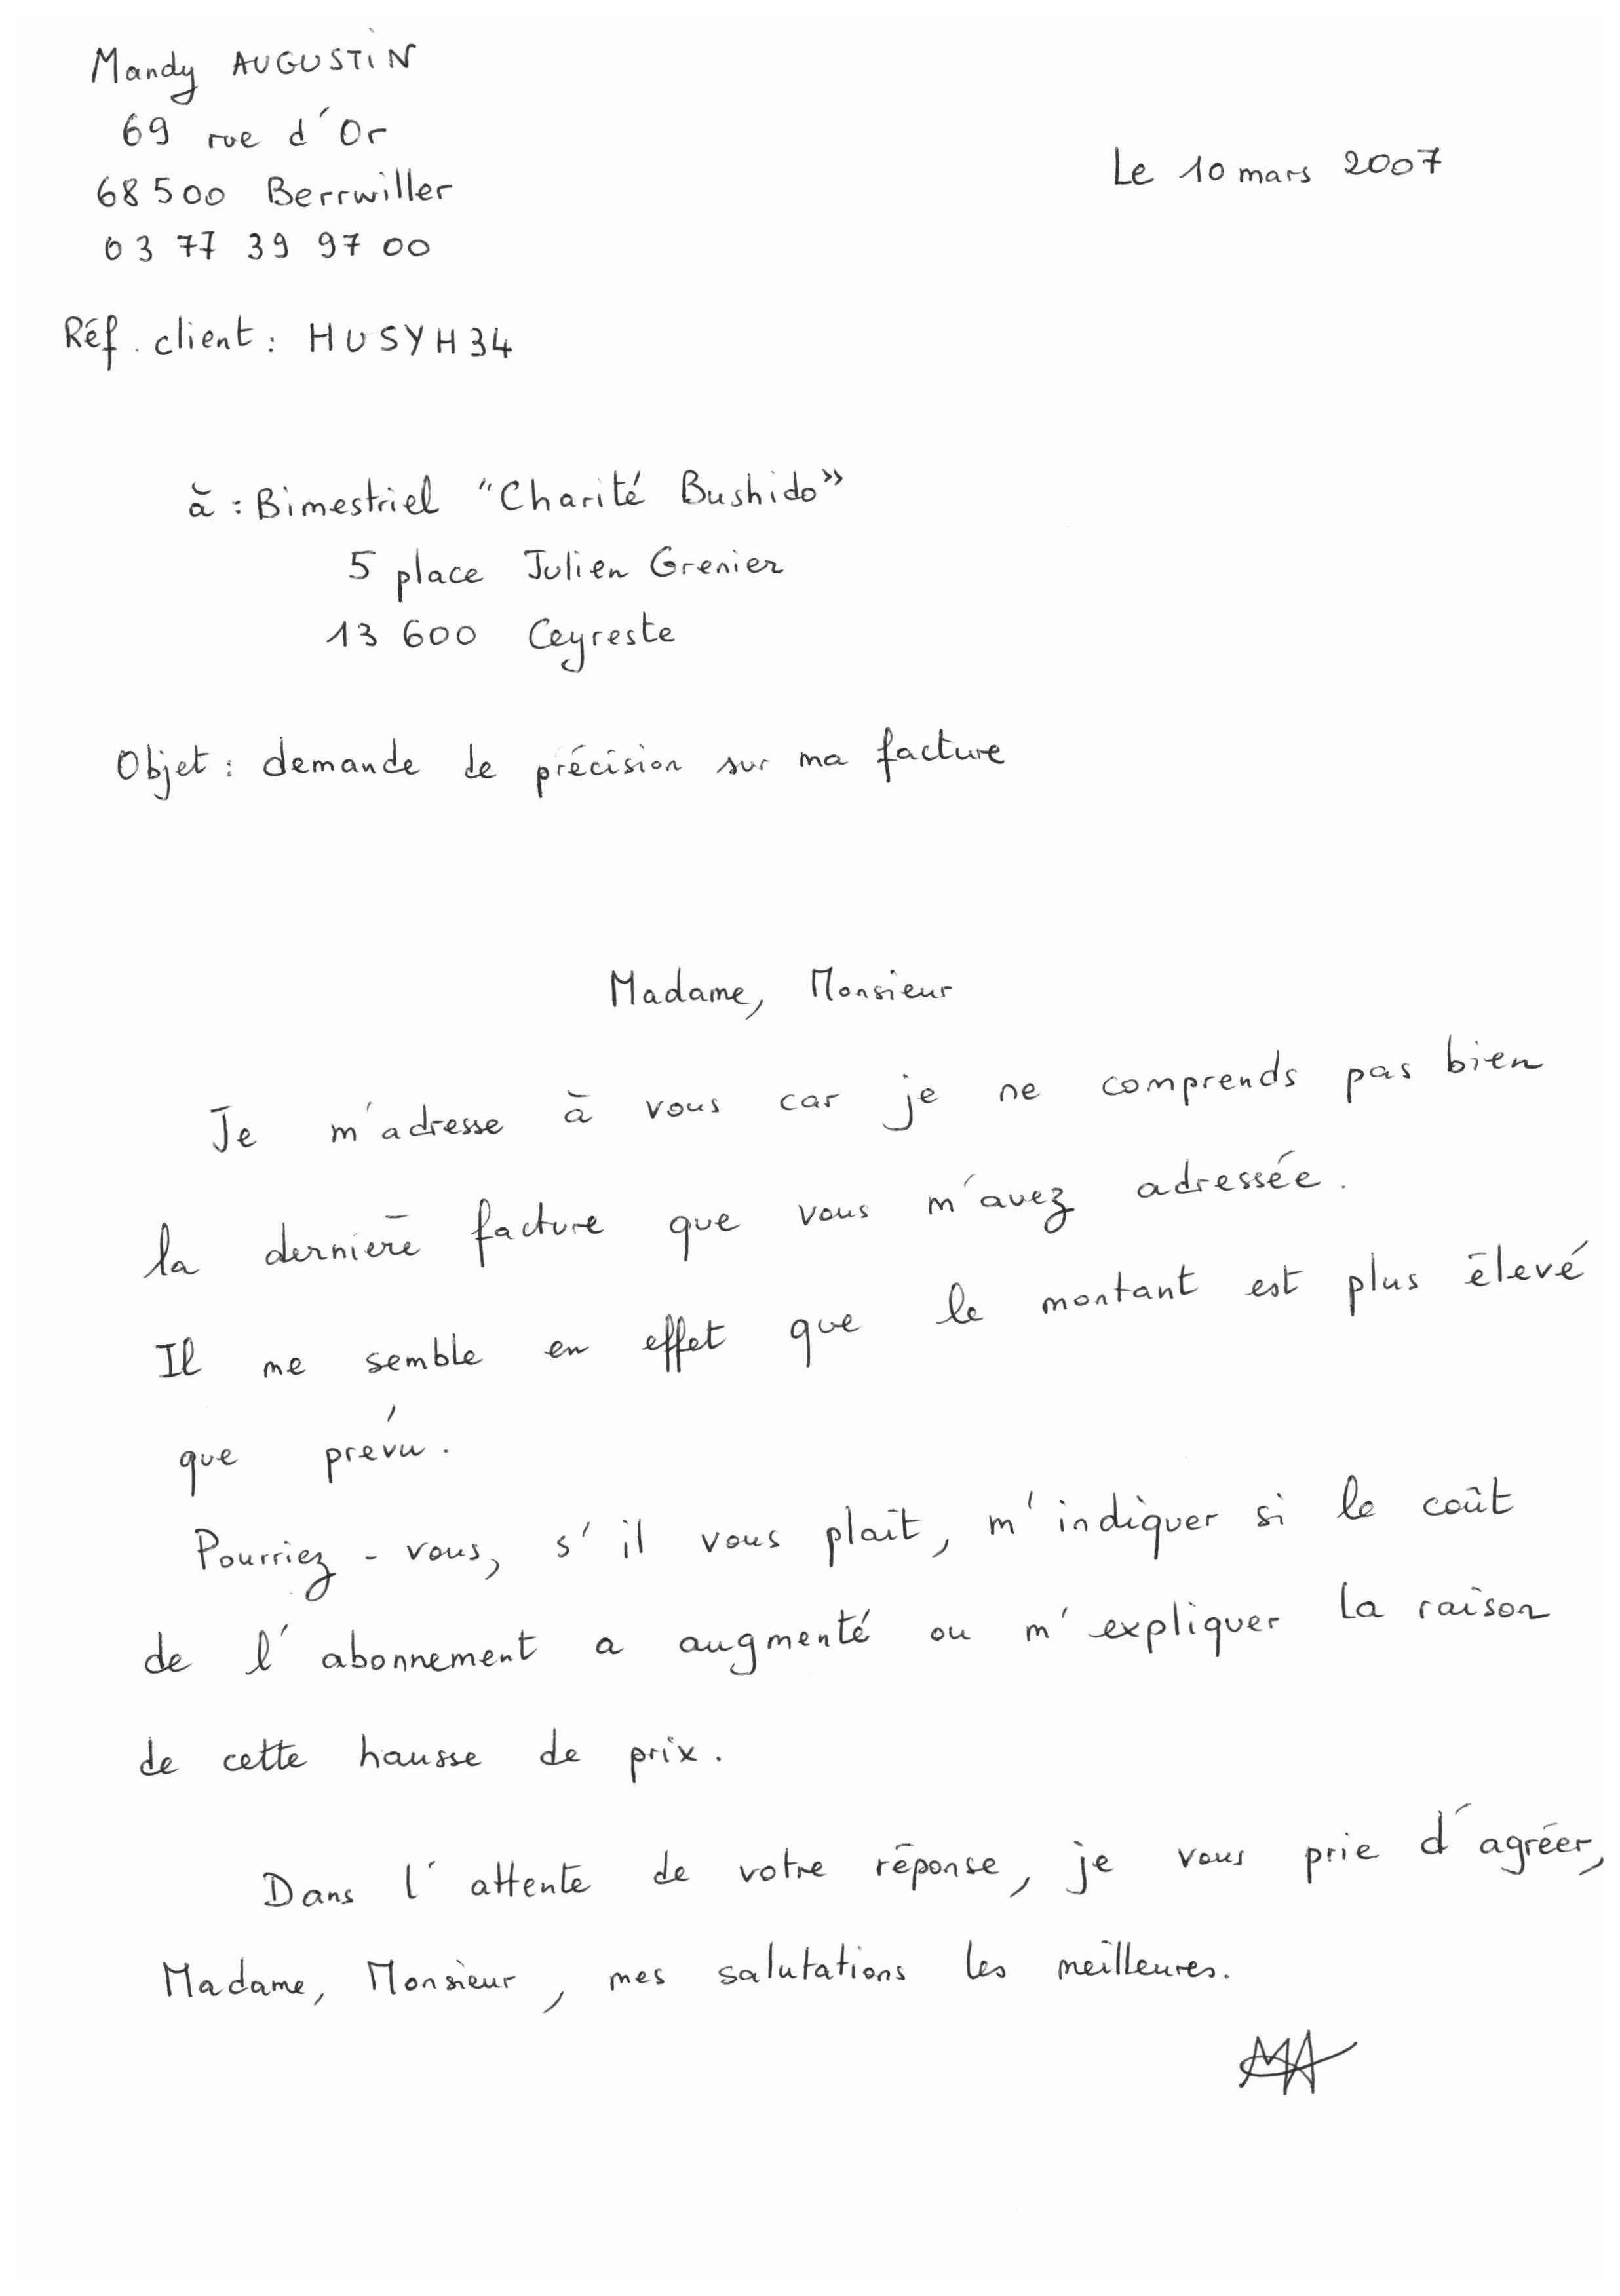 Mandy AUGUSTIN
69 rue d'Or
68500 Berrwiller
03 77 39 97 00
Le 10 mars 2007
Réf. client : HUSYH34
à : Bimestriel "Charité Bushido"
5 place Julien Grenier
13 600 Ceyreste
Objet : demande de précision sur ma facture
Madame, Monsieur
Je m'adresse à vous car je ne comprends pas bien
la dernière facture que vous m'avez adressée.
Il me semble en effet que le montant est plus élevé
que prévu.
Pourriez-vous, s'il vous plaît, m'indiquer si le coût
de l'abonnement a augmenté ou m'expliquer la raison
de cette hausse de prix.
Dans l'attente de votre réponse, je vous prie d'agréer,
Madame, Monsieur, mes salutations les meilleures.
MA